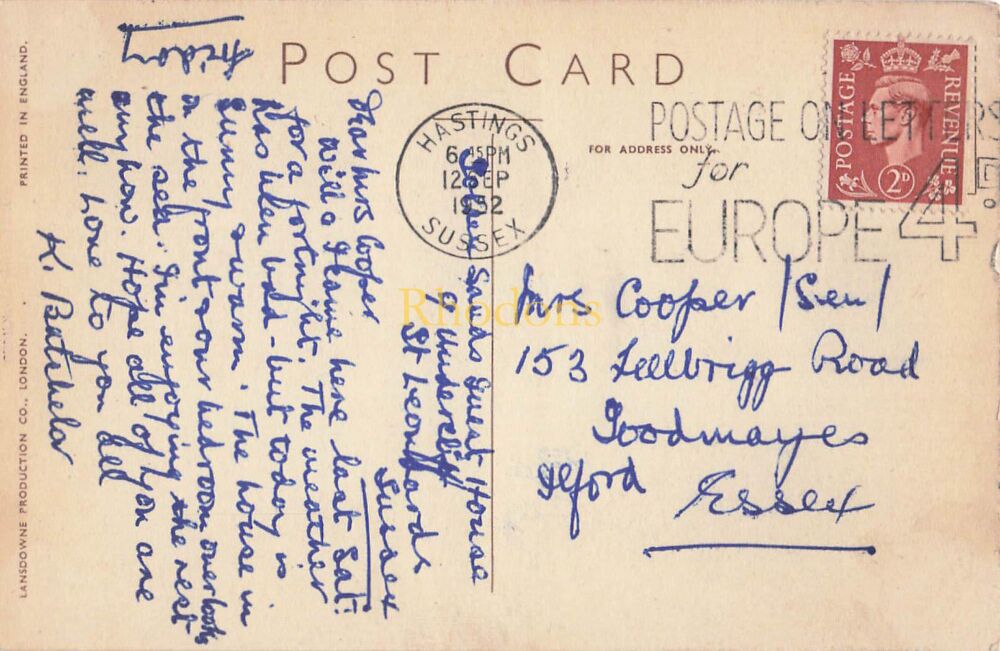 POST CARD
FOR ADDRESS ONLY.
PRINTED IN ENGLAND.
LANSDOWNE PRODUCTION CO., LONDON.
HASTINGS
6 45PM
12 SEP
1952
SUSSEX
POSTAGE ON LETTERS
for
EUROPE 4
POSTAGE
REVENUE
2D
Rhodons
Sands Guest House
Undercliff
St Leonards
Sussex
Friday
Dear Mrs Cooper
Will & Elaine here last Sat:
for a fortnight. The weather
has been bad - but today is
sunny & warm. The house is
on the front & our bedroom overlooks
the sea. I'm enjoying the rest
anyhow. Hope all of you are
well. Love to you all
K. Batchelor
Mrs Cooper /Sen/
153 Fellbrigg Road
Goodmayes
Ilford
Essex